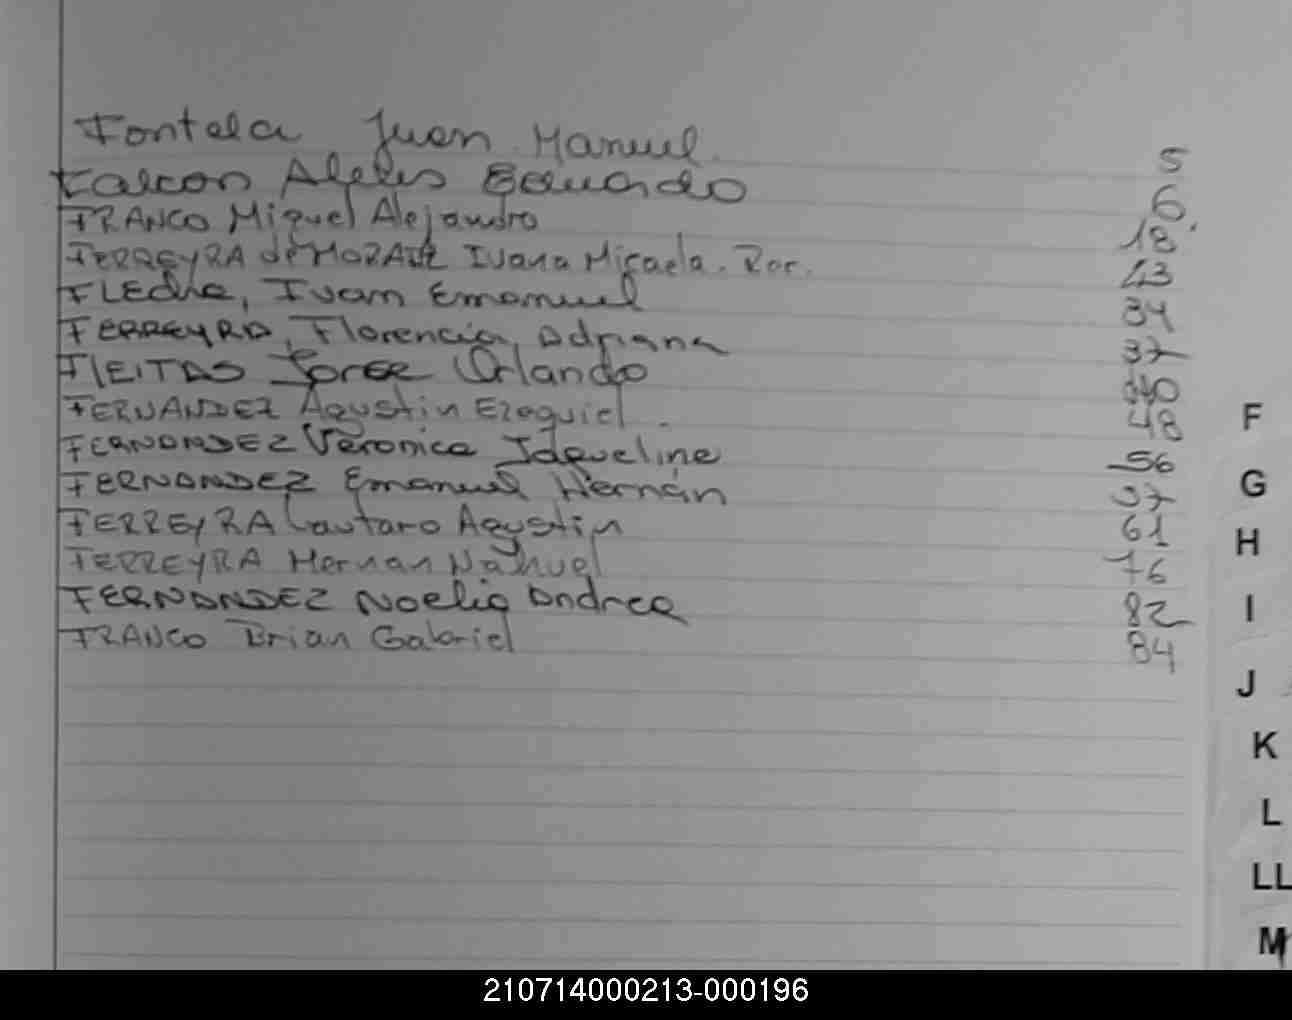 Fontela Juan Manuel. 5
Falcon Alexis Eduardo 6
FRANCO Miguel Alejandro 18
FERREYRA de MORAIZ Ivana Micaela. Roc. 23
FLEcha, Ivan Emanuel 34
FERREYRA, Florencia Adriana 37
FLEITAS Jorge Orlando 40
FERNANDEZ Agustin Ezequiel. 48
FERNANDEZ Veronica Jaqueline 56
FERNANDEZ Emanuel Hernán 57
FERREYRA Lautaro Agustin 61
FERREYRA Hernan Nahuel 76
FERNANDEZ Noelia Andrea 82
FRANCO Brian Gabriel 84
F
G
H
I
J
K
L
LL
M
210714000213-000196